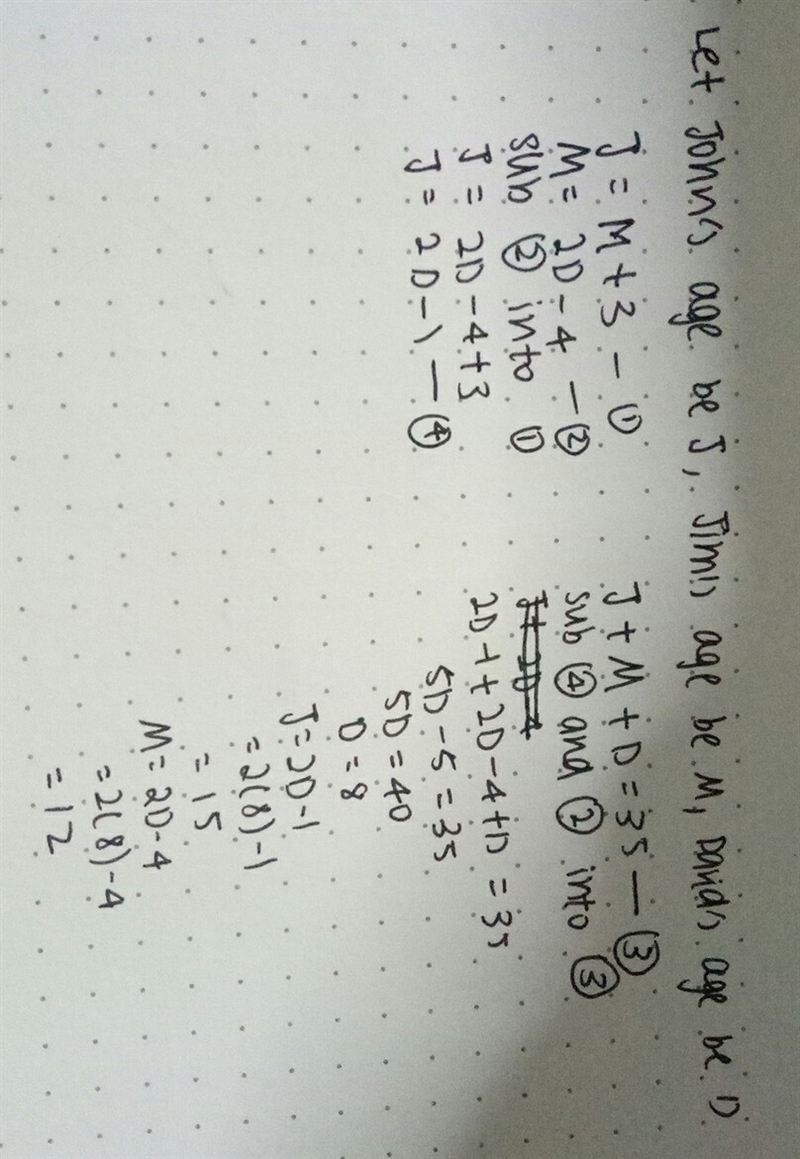 Let John's age be J, Jim's age be M, David's age be D
J = M + 3 — ①
M = 2D - 4 — ②
sub ② into ①
J = 2D - 4 + 3
J = 2D - 1 — ④
J + M + D = 35 — ③
sub ④ and ② into ③
J + 2D - 4
2D - 1 + 2D - 4 + D = 35
5D - 5 = 35
5D = 40
D = 8
J = 2D - 1
= 2(8) - 1
= 15
M = 2D - 4
= 2(8) - 4
= 12